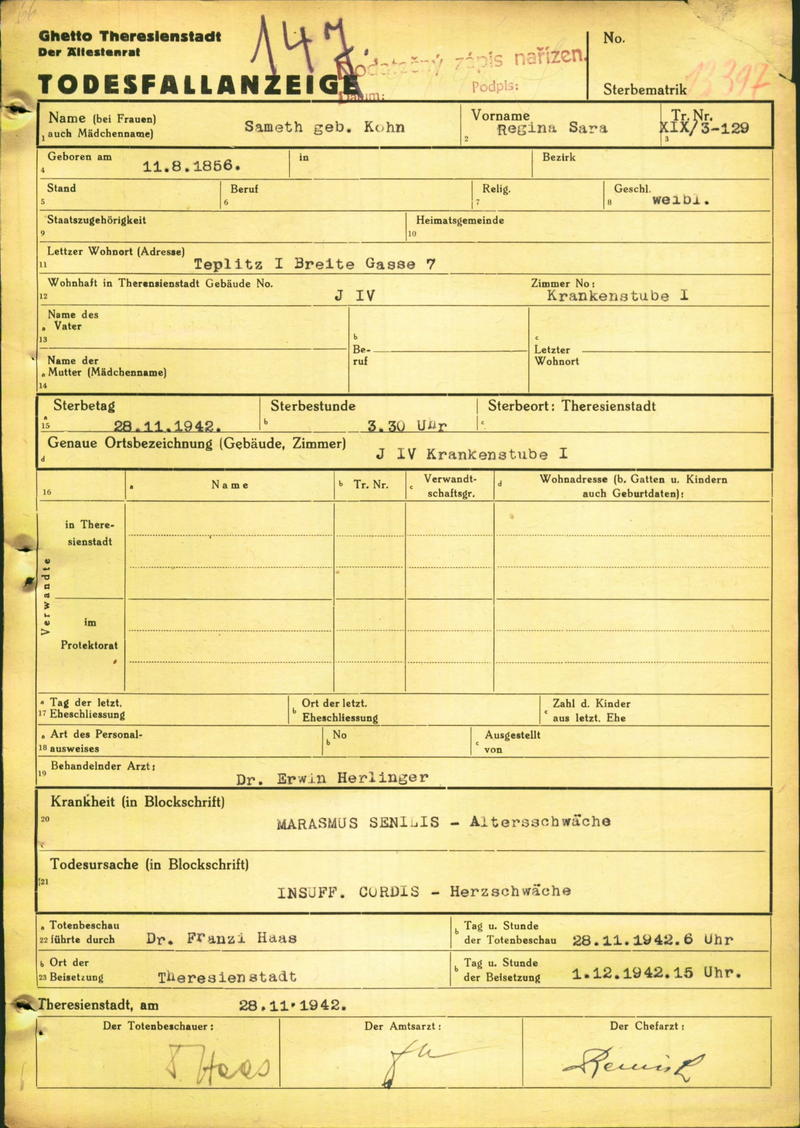 Ghetto Theresienstadt
Der Ältestenrat
TODESFALLANZEIGE
147
Dodatečný zápis nařízen.
Datum: Podpis:
No.
Sterbematrik 13397
Name (bei Frauen)
1 auch Mädchenname)
Sameth geb. Kohn
Vorname
2 Regina Sara
Tr. Nr.
XIX/3-129
3
Geboren am
4 11.8.1856.
in
Bezirk
Stand
5
Beruf
6
Relig.
7
Geschl.
8 weibl.
Staatszugehörigkeit
9
Heimatsgemeinde
10
Lettzer Wohnort (Adresse)
11 Teplitz I Breite Gasse 7
Wohnhaft in Theresienstadt Gebäude No.
12 J IV
Zimmer No:
Krankenstube I
Name des
a Vater
13
b
Be-
ruf
c
Letzter
Wohnort
Name der
a Mutter (Mädchenname)
14
Sterbetag
a
15 28.11.1942.
Sterbestunde
b 3.30 Uhr
Sterbeort: Theresienstadt
c
Genaue Ortsbezeichnung (Gebäude, Zimmer)
d J IV Krankenstube I
16
a Name
b Tr. Nr.
c Verwandt-
schaftsgr.
d Wohnadresse (b. Gatten u. Kindern
auch Geburtdaten):
Verwandte
in There-
sienstadt
im
Protektorat
a Tag der letzt.
17 Eheschliessung
b Ort der letzt.
Eheschliessung
c Zahl d. Kinder
aus letzt. Ehe
a Art des Personal-
18 ausweises
b No
c Ausgestellt
von
Behandelnder Arzt:
19 Dr. Erwin Herlinger
Krankheit (in Blockschrift)
20
MARASMUS SENILIS - Altersschwäche
Todesursache (in Blockschrift)
21
INSUFF. CORDIS - Herzschwäche
a Totenbeschau
22 führte durch Dr. Franzi Haas
b Tag u. Stunde
der Totenbeschau 28.11.1942.6 Uhr
b Ort der
23 Beisetzung Theresienstadt
b Tag u. Stunde
der Beisetzung 1.12.1942.15 Uhr.
Theresienstadt, am 28.11.1942.
Der Totenbeschauer:
F Haas
Der Amtsarzt:
Der Chefarzt: